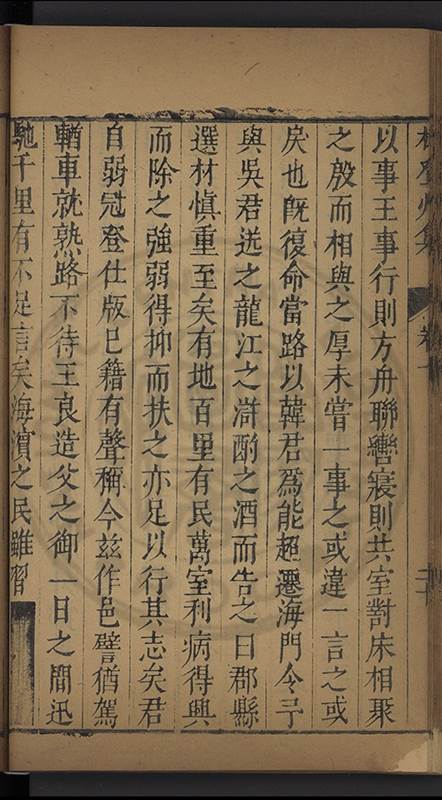 林登州集 卷十
以事王事行則方舟聯轡寢則共室對床相聚
之殷而相與之厚未嘗一事之或違一言之或
戾也既復命當路以韓君爲能超遷海門令予
與吳君送之龍江之滸酌之酒而告之曰郡縣
選材慎重至矣有地百里有民萬室利病得興
而除之強弱得抑而扶之亦足以行其志矣君
自弱冠登仕版已籍有聲稱今玆作邑譬猶駕
輶車就熟路不待王良造父之御一日之間迅
馳千里有不足言矣海濱之民雖習